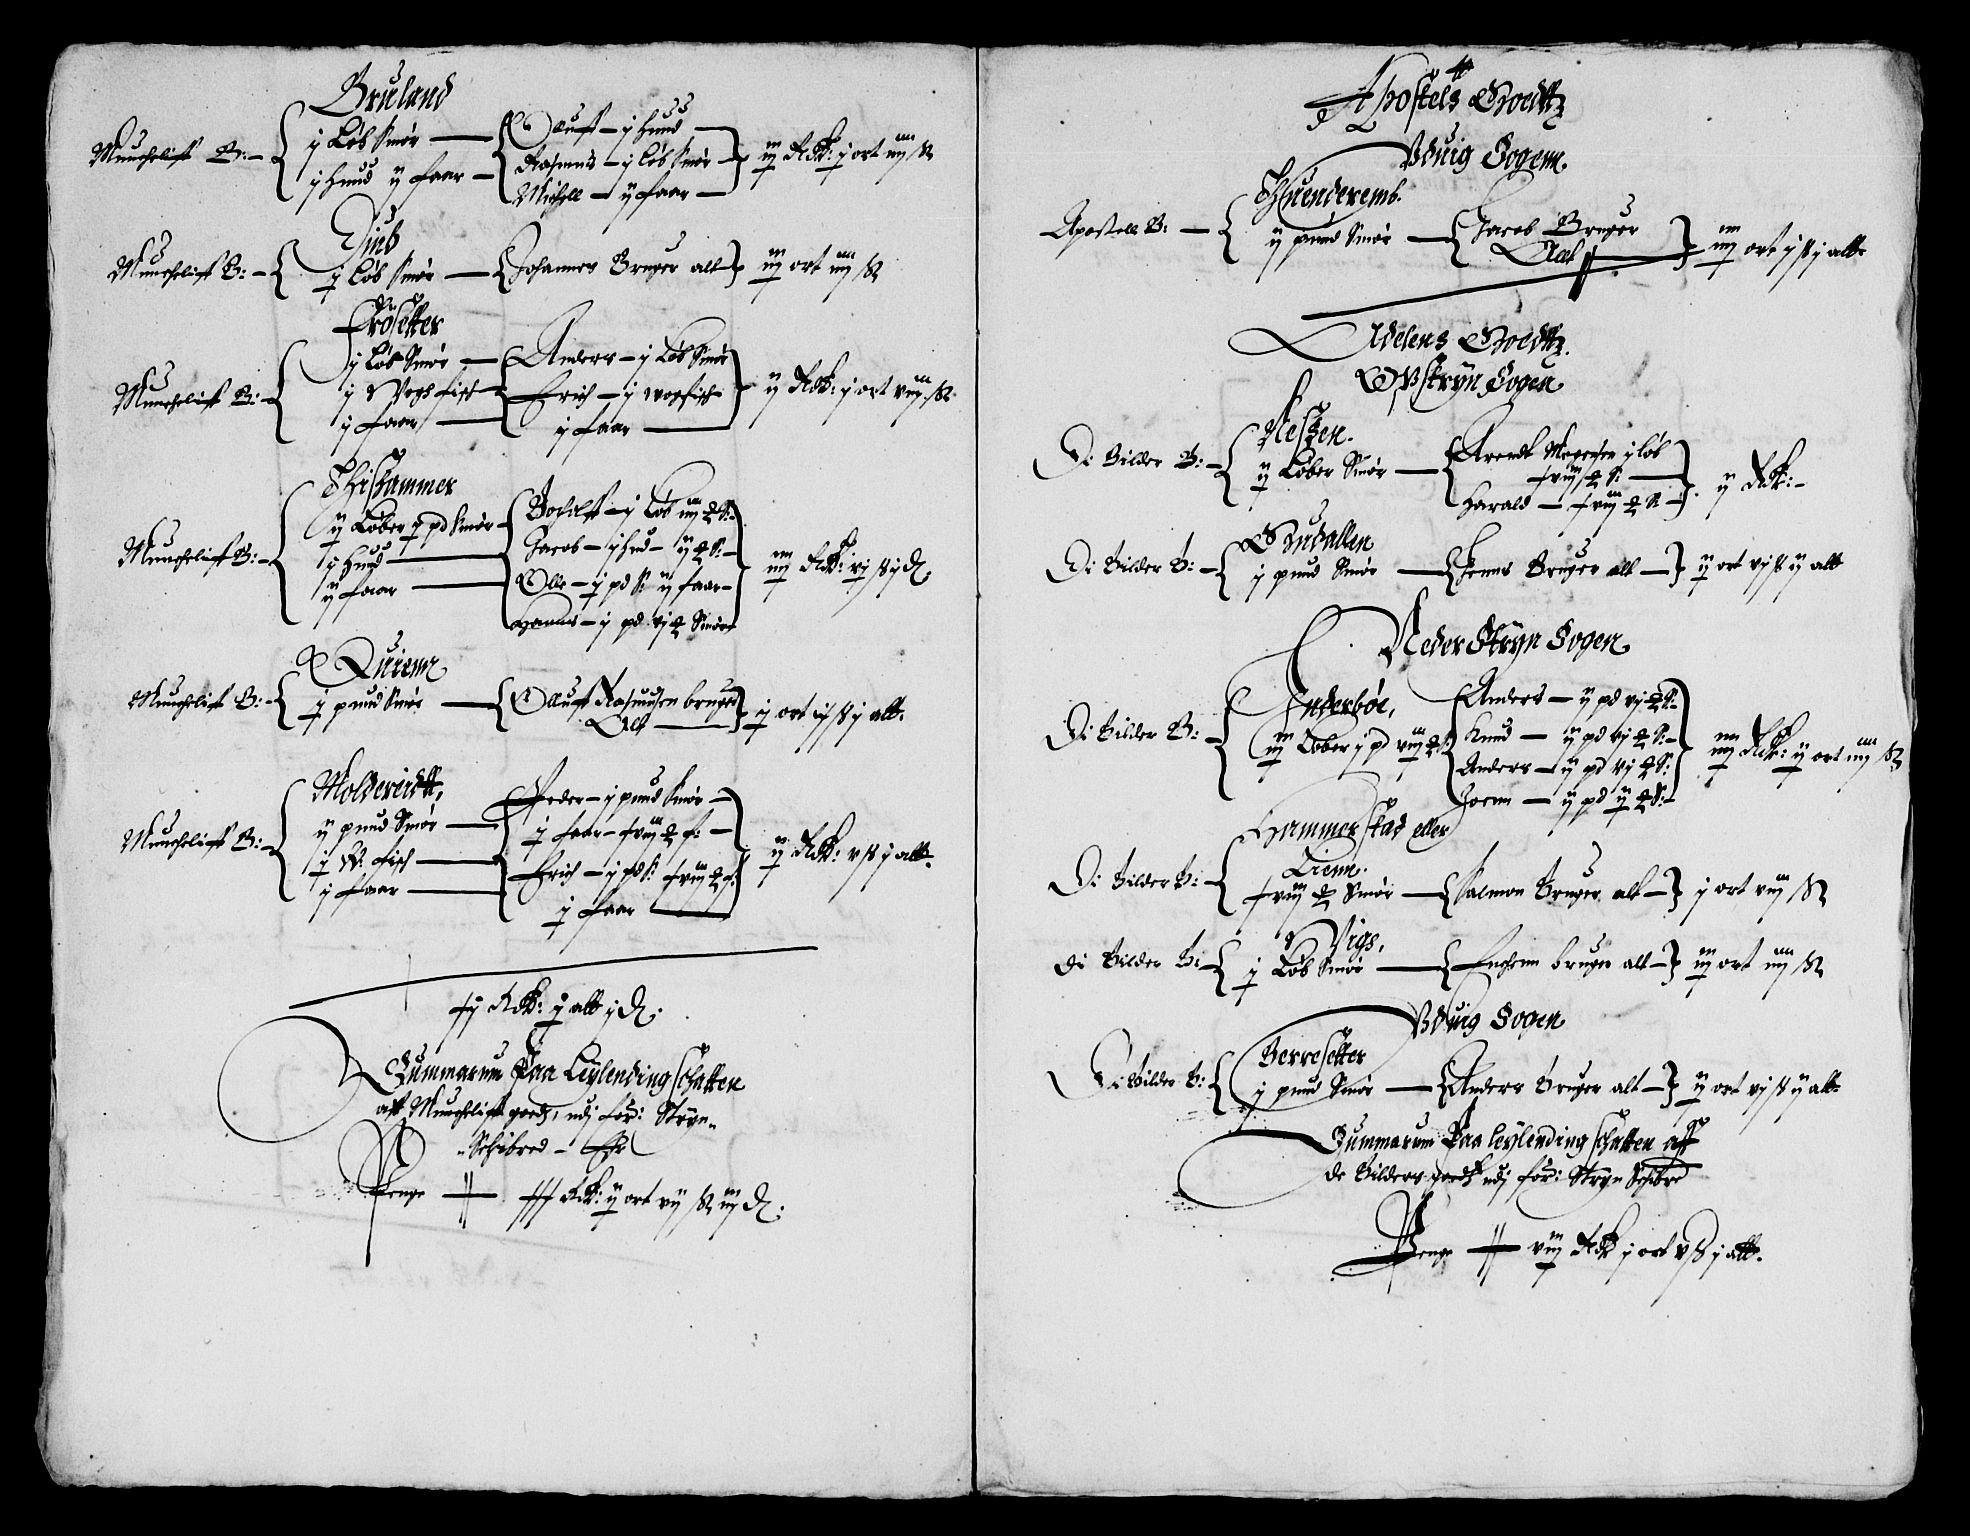 Bruland
Munchelift B:
j Løb Smør
j Hud ij faar
Oluff – j Hud
Rasmus – j Løb Smør
Michell – ij faar
iij Rdr: j ort iiij ß
Munchelift B:
j Løb Smør
Johannes Bruger alt
iij ort iiij ß
Frøsetter
Munchelift B:
j Løb Smør
j Vogh fisk
j faar
Anders – j Løb Smør
Erich – j vog fisk
j faar
ij Rdr: j ort viij ß
Thishammer
Munchelift B:
ij Løber j pd Smør
j Hud
ij faar
Jacob – j Hud – ij S:
Olle – j pd S: ij faar
Hanns – j pd vj Smør
iiij Rdr: vj ß j
Munchelift B:
j pund Smør
Oluff Rasmusen bruger
Alt
j ort ij ß j alb.
Moldereidtt,
Munchelift B:
ij pund Smør
j W: fisk
j faar
Peder – j pund Smør
j faar
Erich – j pd S:
j faar
ij Rdr: v ß j alb.
Rdr: j alb j
Summarum Paa Leylending schatten
aff Munchelift goeds, udj for: Stryn
Schibred – Er
Penge
Rdr: ij ort vij ß iij
Apostels Goedtz
Vduig Sogenn.
Apostell B:
ij pund Smør
Jacob Bruger
Alt
iiij ort j ß j alb
Adelens Goedtz.
Opstryn Sogen
Neszen.
Di Bilder B:
ij Løber Smør
Arendt Mogensen j løb
Harald
ij Rdr:
Di Bilder B:
j pund Smør
Jenns Bruger alt
ij ort vj ß ij alb
Neder Stryn Sogen
Inderbøe,
Di Bilder B:
iij Løber j pd viij S:
Anders – ij pd vj S:
Knud – ij pd vj S:
Anders – ij pd vj S:
Joenn – ij pd ij S:
iiij Rdr: ij ort iiij ß
Hammerstad eller
Lienn.
Di Bilder B:
Smør
Salmon Bruger alt
j ort viij ß
Vigs,
Di Bilder B:
j Løb Smør
bruger alt
iij ort iiij ß
Vduig Sogen
Berresetter
Di Bilder B:
j pund Smør
Anders Bruger alt
ij ort vj ß ij alb
Summarum Paa Leylending schatten aff
de Bilders goeds udj for: Stryn Schibre
Penge
viij Rdr j ort v ß j alb.